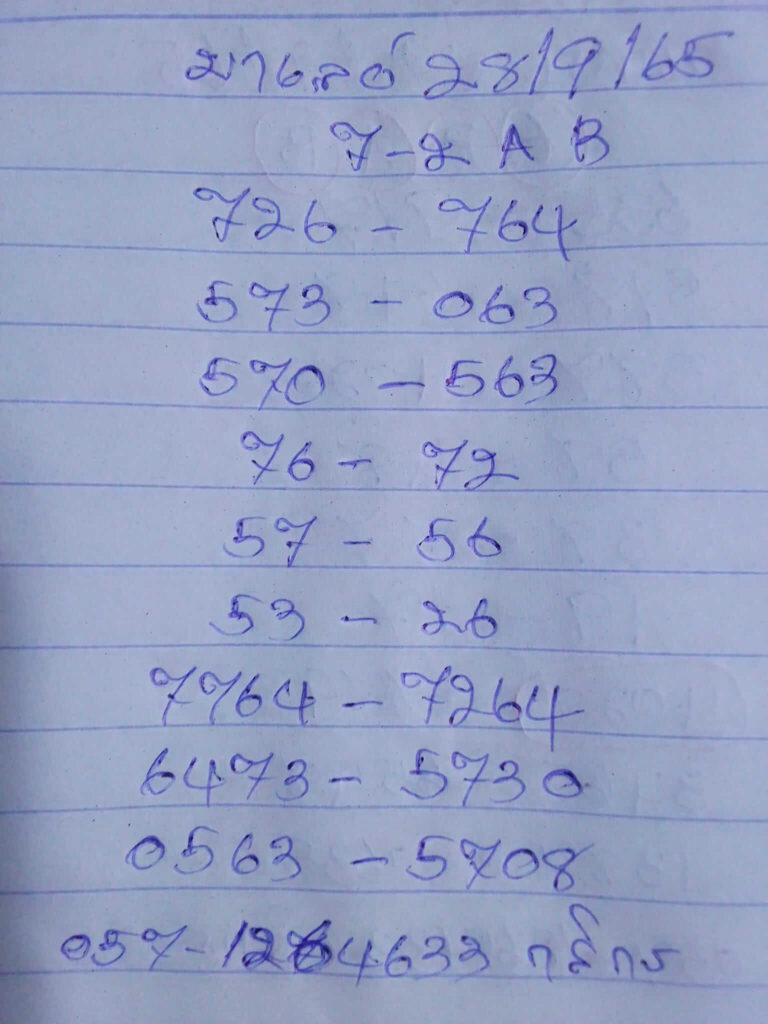 มาเลย์ 28/9/65
7-2 A B
726 - 764
573 - 063
570 - 563
76 - 72
57 - 56
53 - 26
7764 - 7264
6473 - 5730
0563 - 5708
057-1264633 กสิกร